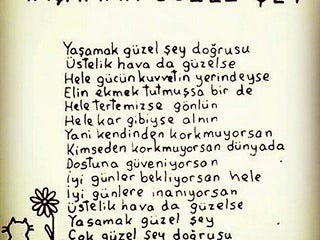 YAŞAMAK GÜZEL ŞEY
Yaşamak güzel şey doğrusu
Üstelik hava da güzelse
Hele gücün kuvvetin yerindeyse
Elin ekmek tutmuşsa bir de
Hele tertemizse gönlün
Hele kar gibiyse alnın
Yani kendinden korkmuyorsan
Kimseden korkmuyorsan dünyada
Dostuna güveniyorsan
İyi günler bekliyorsan hele
İyi günlere inanıyorsan
Üstelik hava da güzelse
Yaşamak güzel şey
Çok güzel şey doğrusu